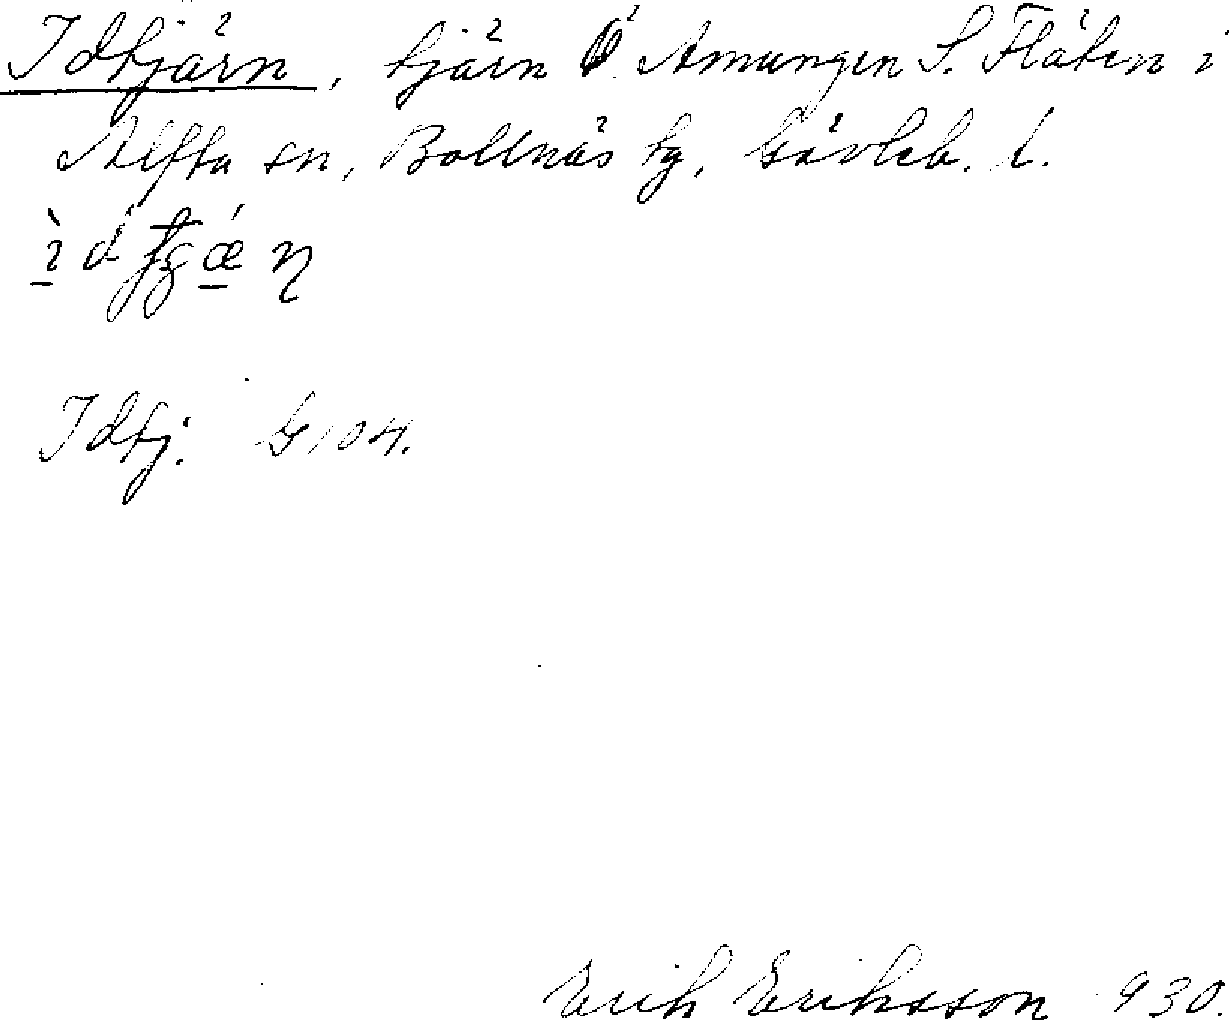 Idtjärn, tjärn Ö. Amungen S. Flåten i
Alfta sn, Bollnäs tg, Gävleb. l.
Idtj. G104.
Erik Eriksson 930.